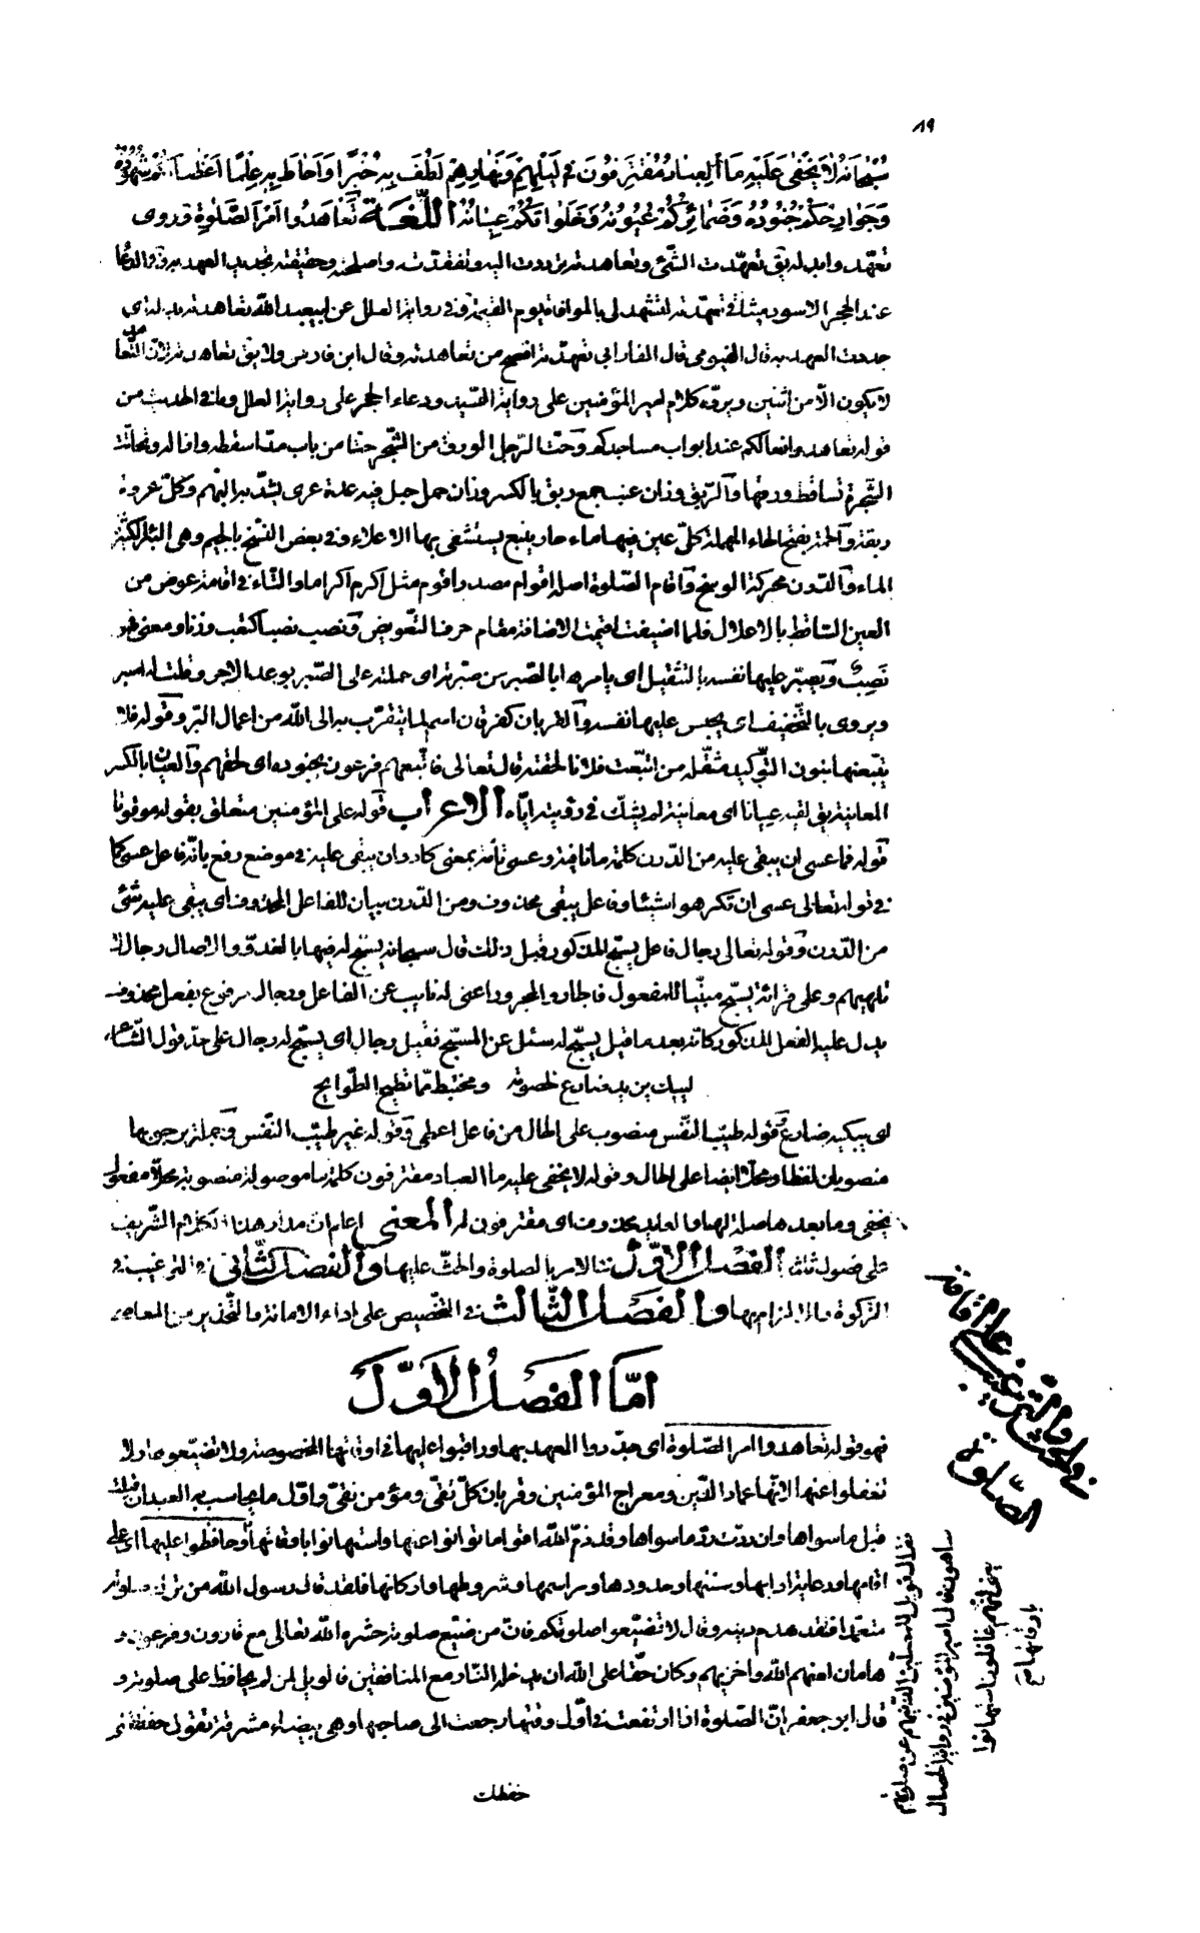 ١٩
سُبْحَانَهُ لَا يَخْفَىٰ عَلَيْهِ مَا الْعِبَادُ مُقْتَرِفُونَ فِي لَيْلِهِمْ وَنَهَارِهِمْ لَطُفَ بِهِ خُبْرًا وَأَحَاطَ بِهِ عِلْمًا أَعْضَاؤُكُمْ شُهُودُهُ
وَجَوَارِحُكُمْ جُنُودُهُ وَضَمَائِرُكُمْ عُيُونُهُ وَخَلَوَاتُكُمْ عِيَانُهُ اللّغة تَعَاهَدُوا أَمْرَ الصَّلٰوةِ وروى
تعهّدوا بدله يق تعهّدت الشّئ وتعاهدته تردّدت اليه وتفقّدته واصلحته وحقيقته تجديد العهد به وفى الدّعا
عند الحجر الاسود ميثاقى تعهّدته لتشهد لى بالموافاة يوم القيمة وفى رواية العلل عن ابيعبد الله تعاهدته بدله اى
جددت العهد به قال الفيومى قال الفارابى تعهّدته افصح من تعاهدته وقال ابن فارس ولا يق تعاهدته لانّ التّعاهد
لا يكون الّا من اثنين ويردّه كلام امير المؤمنين على رواية السّيد ودعاء الحجر على رواية العلل وما فى الحديث من
قوله تعاهدوا نعالكم عند ابواب مساجدكم وحتّ الرّجل الورق من الشّجر حتّا من باب مدّ اسقطه وازاله وتحاتّت
الشّجرة تساقط ورقها والرّبق وزان عنب جمع ربق بالكسر وزان حمل حبل فيه عدة عرى يشدّ به البهم وكلّ عروة
ربقة والحمّة بفتح الحاء المهملة كلّ عين فيها ماء حار ينبع يستشفى بها الاعلاء وفى بعض النّسخ بالجيم وهى البئر الكثيرة
الماء والدّرن محركة الوسخ واقام الصّلوة اصله اقوام مصدر اقوم مثل اكرم اكراما والتّاء فى اقامة عوض من
العين السّاقط بالاعلال فلمّا اضيفت اقيمت الاضافة مقام حرف التّعويض ونصب نصبا كتعب وزنا ومعنى فهو
نَصِبٌ ويصبّر عليها نفسه بالتثقيل اى يامرها بالصّبر من صبّرته اى حملته على الصّبر بوعد الاجر وقلت له اصبر
ويروى بالتّخفيف اى يحبس عليها نفسه والقربان كفرقان اسم لما يتقرّب به الى الله من اعمال البرّ وقوله فلا
يتبعنها بنون التّوكيد مثقّلة من اتبعت فلانا لحقته قال تعالى فاتبعهم فرعون بجنوده اى لحقهم والعيان بالكسر
المعاينة يق لقيه عيانا اى معاينة لم يشكّ فى رؤيته ايّاه الاعراب قوله على المؤمنين متعلق بقوله موقوتا
قوله فما عسى ان يبقى عليه من الدّرن كلمة ما نافية وعسى تامّة بمعنى كاد وان يبقى عليه فى موضع رفع بانّه فاعل عسى كما
فى قوله تعالى عسى ان تكرهوا شيئا وفاعل يبقى محذوف ومن الدّرن بيان للفاعل المحذوف اى يبقى عليه شئ
من الدّرن وقوله تعالى رجال فاعل يسبّح المذكور قبل ذلك قال سبحانه يسبّح له فيها بالغدوّ والاصال رجال لا
تلهيهم وعلى قرائة يسبّح مبنيّا للمفعول فالجار والمجرور اعنى له نايب عن الفاعل ورجال مرفوع بفعل محذوف
يدل عليه الفعل المذكور كانّه بعد ما قيل يسبّح له سئل عن المسبّح فقيل رجال اى يسبّح له رجال على حدّ قول الشّاعر
ليبك يزيد ضارع لخصومة ومختبط ممّا تطيح الطّوايح
اى يبكيه ضارع وقوله طيّب النّفس منصوب على الحال من فاعل اعطى وقوله غير طيّب النّفس وجملة يرجو بها
منصوبان لفظا ومحلّا ايضا على الحال وقوله لا يخفى عليه ما العباد مقترفون كلمة ما موصولة منصوبة محلّا مفعول
يخفى وما بعدها صلة لها والعايد محذوف اى مقترفون له المعنى اعلم ان مدار هذا الكلام الشّريف
على فصول ثلاث الفصل الاوّل فى الامر بالصلوة والحثّ عليها والفصل الثّانى فى الترغيب فى
الزكوة والالزام بها والفصل الثّالث فى التحضيص على اداء الامانة والتّحذير من المعاصى
امّا الفصل الاوّل
فهو قوله تعاهدوا امر الصّلوة اى جدّدوا العهد بها وراقبوا عليها فى اوقاتها المخصوصة ولا تضيّعوها ولا
تغفلوا عنها لانّها عماد الدّين ومعراج المؤمنين وقربان كلّ تقىّ ومؤمن نقىّ واوّل ما يحاسب به العبد ان قبلت
قبل ما سواها وان ردّت ردّ ما سواها وقد ذمّ الله اقواما توانوا عنها واستهانوا باوقاتها وحافظوا عليها اى على
اقامها ورعاية ادابها وسننها وحدودها ومراسمها وشروطها واركانها فلقد قال رسول الله من ترك صلوته
متعمّدا فقد هدم دينه وقال لا تضيّعوا صلوتكم فان من ضيّع صلوته حشره الله تعالى مع قارون وفرعون و
هامان لعنهم الله واخزيهم وكان حقّا على الله ان يدخله النّار مع المنافقين فالويل لمن لم يحافظ على صلوته و
قال ابو جعفر انّ الصّلوة اذا ارتفعت فى اوّل وقتها رجعت الى صاحبها وهى بيضاء مشرقة تقول حفظتنى
حفظك
الصّلوة
فقال فويل للمصلّين الّذينهم عن صلوتهم
ساهون قال امير المؤمنين فى رواية الخصال
يعنى انّهم غافلون استهانوا
باوقاتها